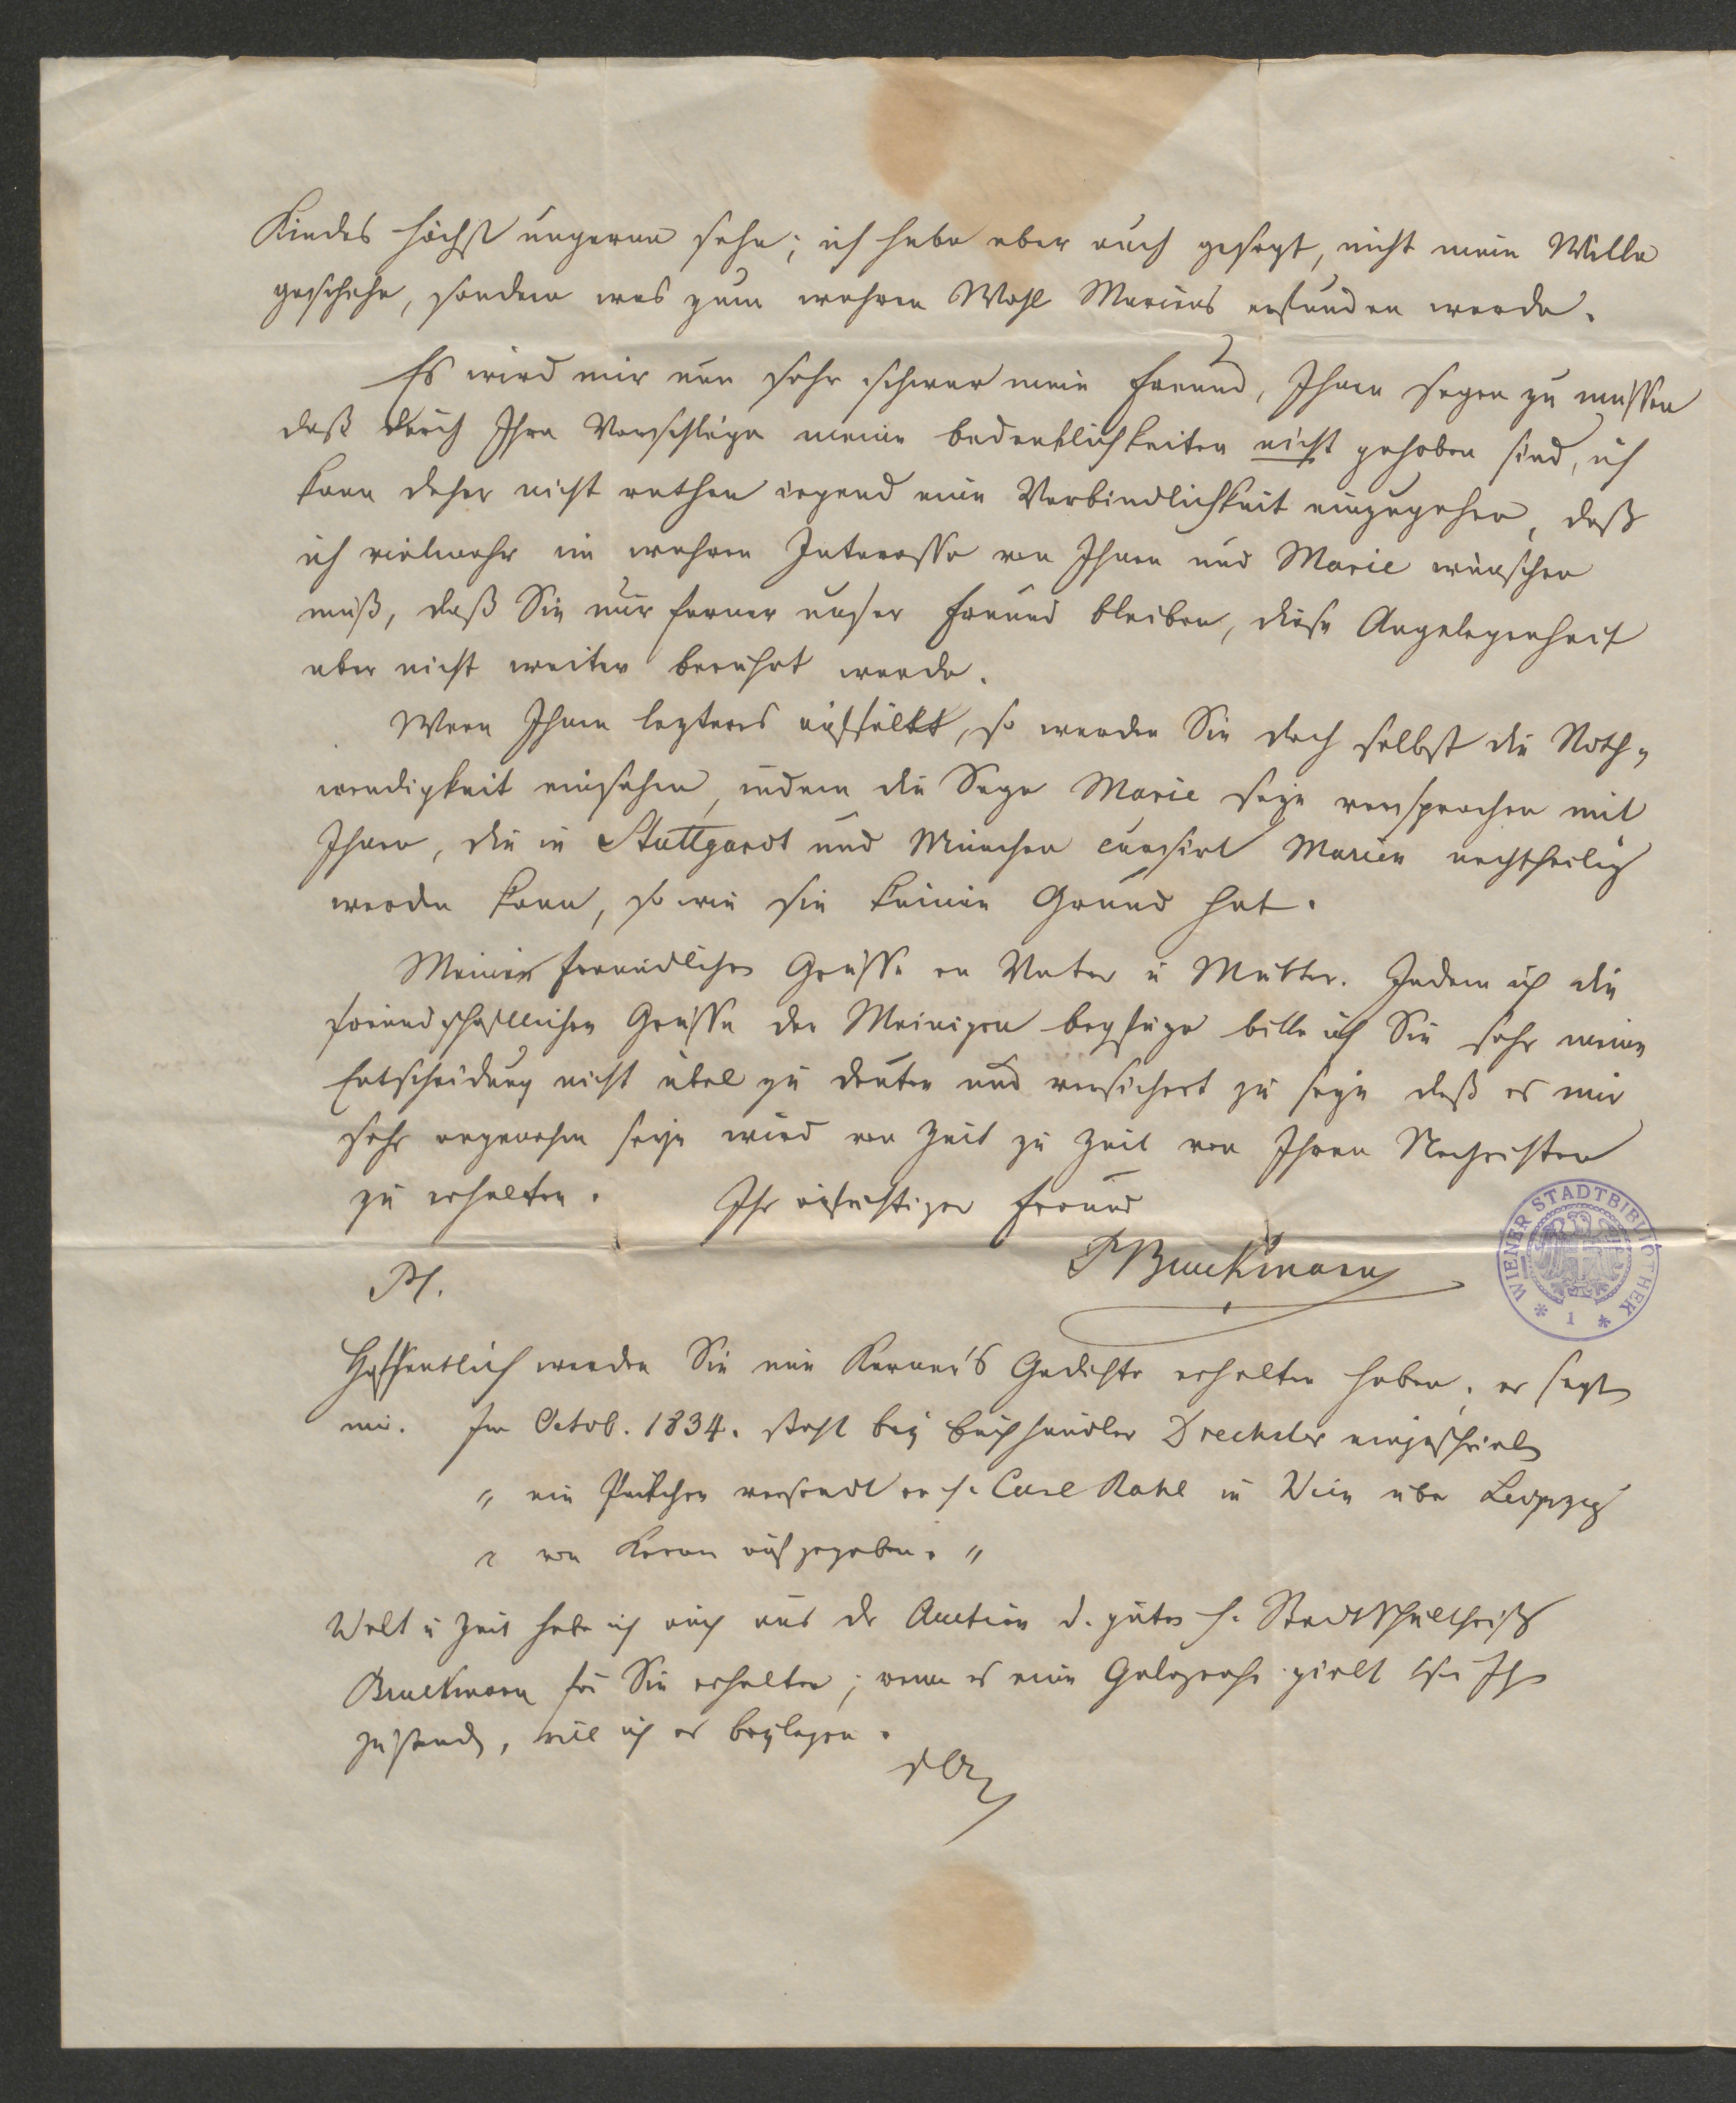 Kindes höchst ungerne sehe; ich habe aber auch gesagt, nicht mein Wille
geschehe, sondern was zum wahren Wohl Mariens erfunden werde.
Es wird mir nun sehr schwer mein Freund, Ihnen sagen zu müssen
daß durch Ihre Vorschläge meine bedenklichkeiten nicht gehoben sind, ich
kann daher nicht rathen irgend eine Verbindlichkeit einzugehen, daß
ich vielmehr im wahren Interesse von Ihnen und Marie wünschen
muß, daß Sie nur ferner unser Freund bleiben, diese Angelegenheit
aber nicht weiter berührt werde.
Wenn Ihnen lezteres auffällt, so werden Sie doch selbst die Noth-
wendigkeit einsehen, indem die Sage Marie seye versprochen mit
Ihnen, die in Stuttgardt und München cursirt Marien nachtheilig
werden kann, so wie sie keinen Grund hat.
Meine freundlichen Grüsse an Vater u Mutter. Indem ich die
freundschaftlichen Grüsse der Meinigen beyfüge bitte ich Sie sehr meine
Entscheidung nicht übel zu deuten und versichert zu seyn daß es mir
sehr angenehm seyn wird von Zeit zu Zeit von Ihnen Nachrichten
zu erhalten. Ihr aufrichtiger Freund
P Bruckmann
PS.
Hoffentlich werden Sie nun Kerner's Gedichte erhalten haben, er sagt
mir. Im Octob. 1834. steht bey Buchhändler Drechsler eingeschrieben
" ein Päckchen versandt an H. Carl Rahl in Wien über Leipzig
" von Kerner aufgegeben. "
Welt u Zeit habe ich auch aus der Auction d. guten H. Stadtschultheiß
Bruckmann für Sie erhalten; wenn es eine Gelegenheit Ihnen
zusenden, will ich es beylegen.
WIENER STADTBIBLIOTHEK
* 1 *